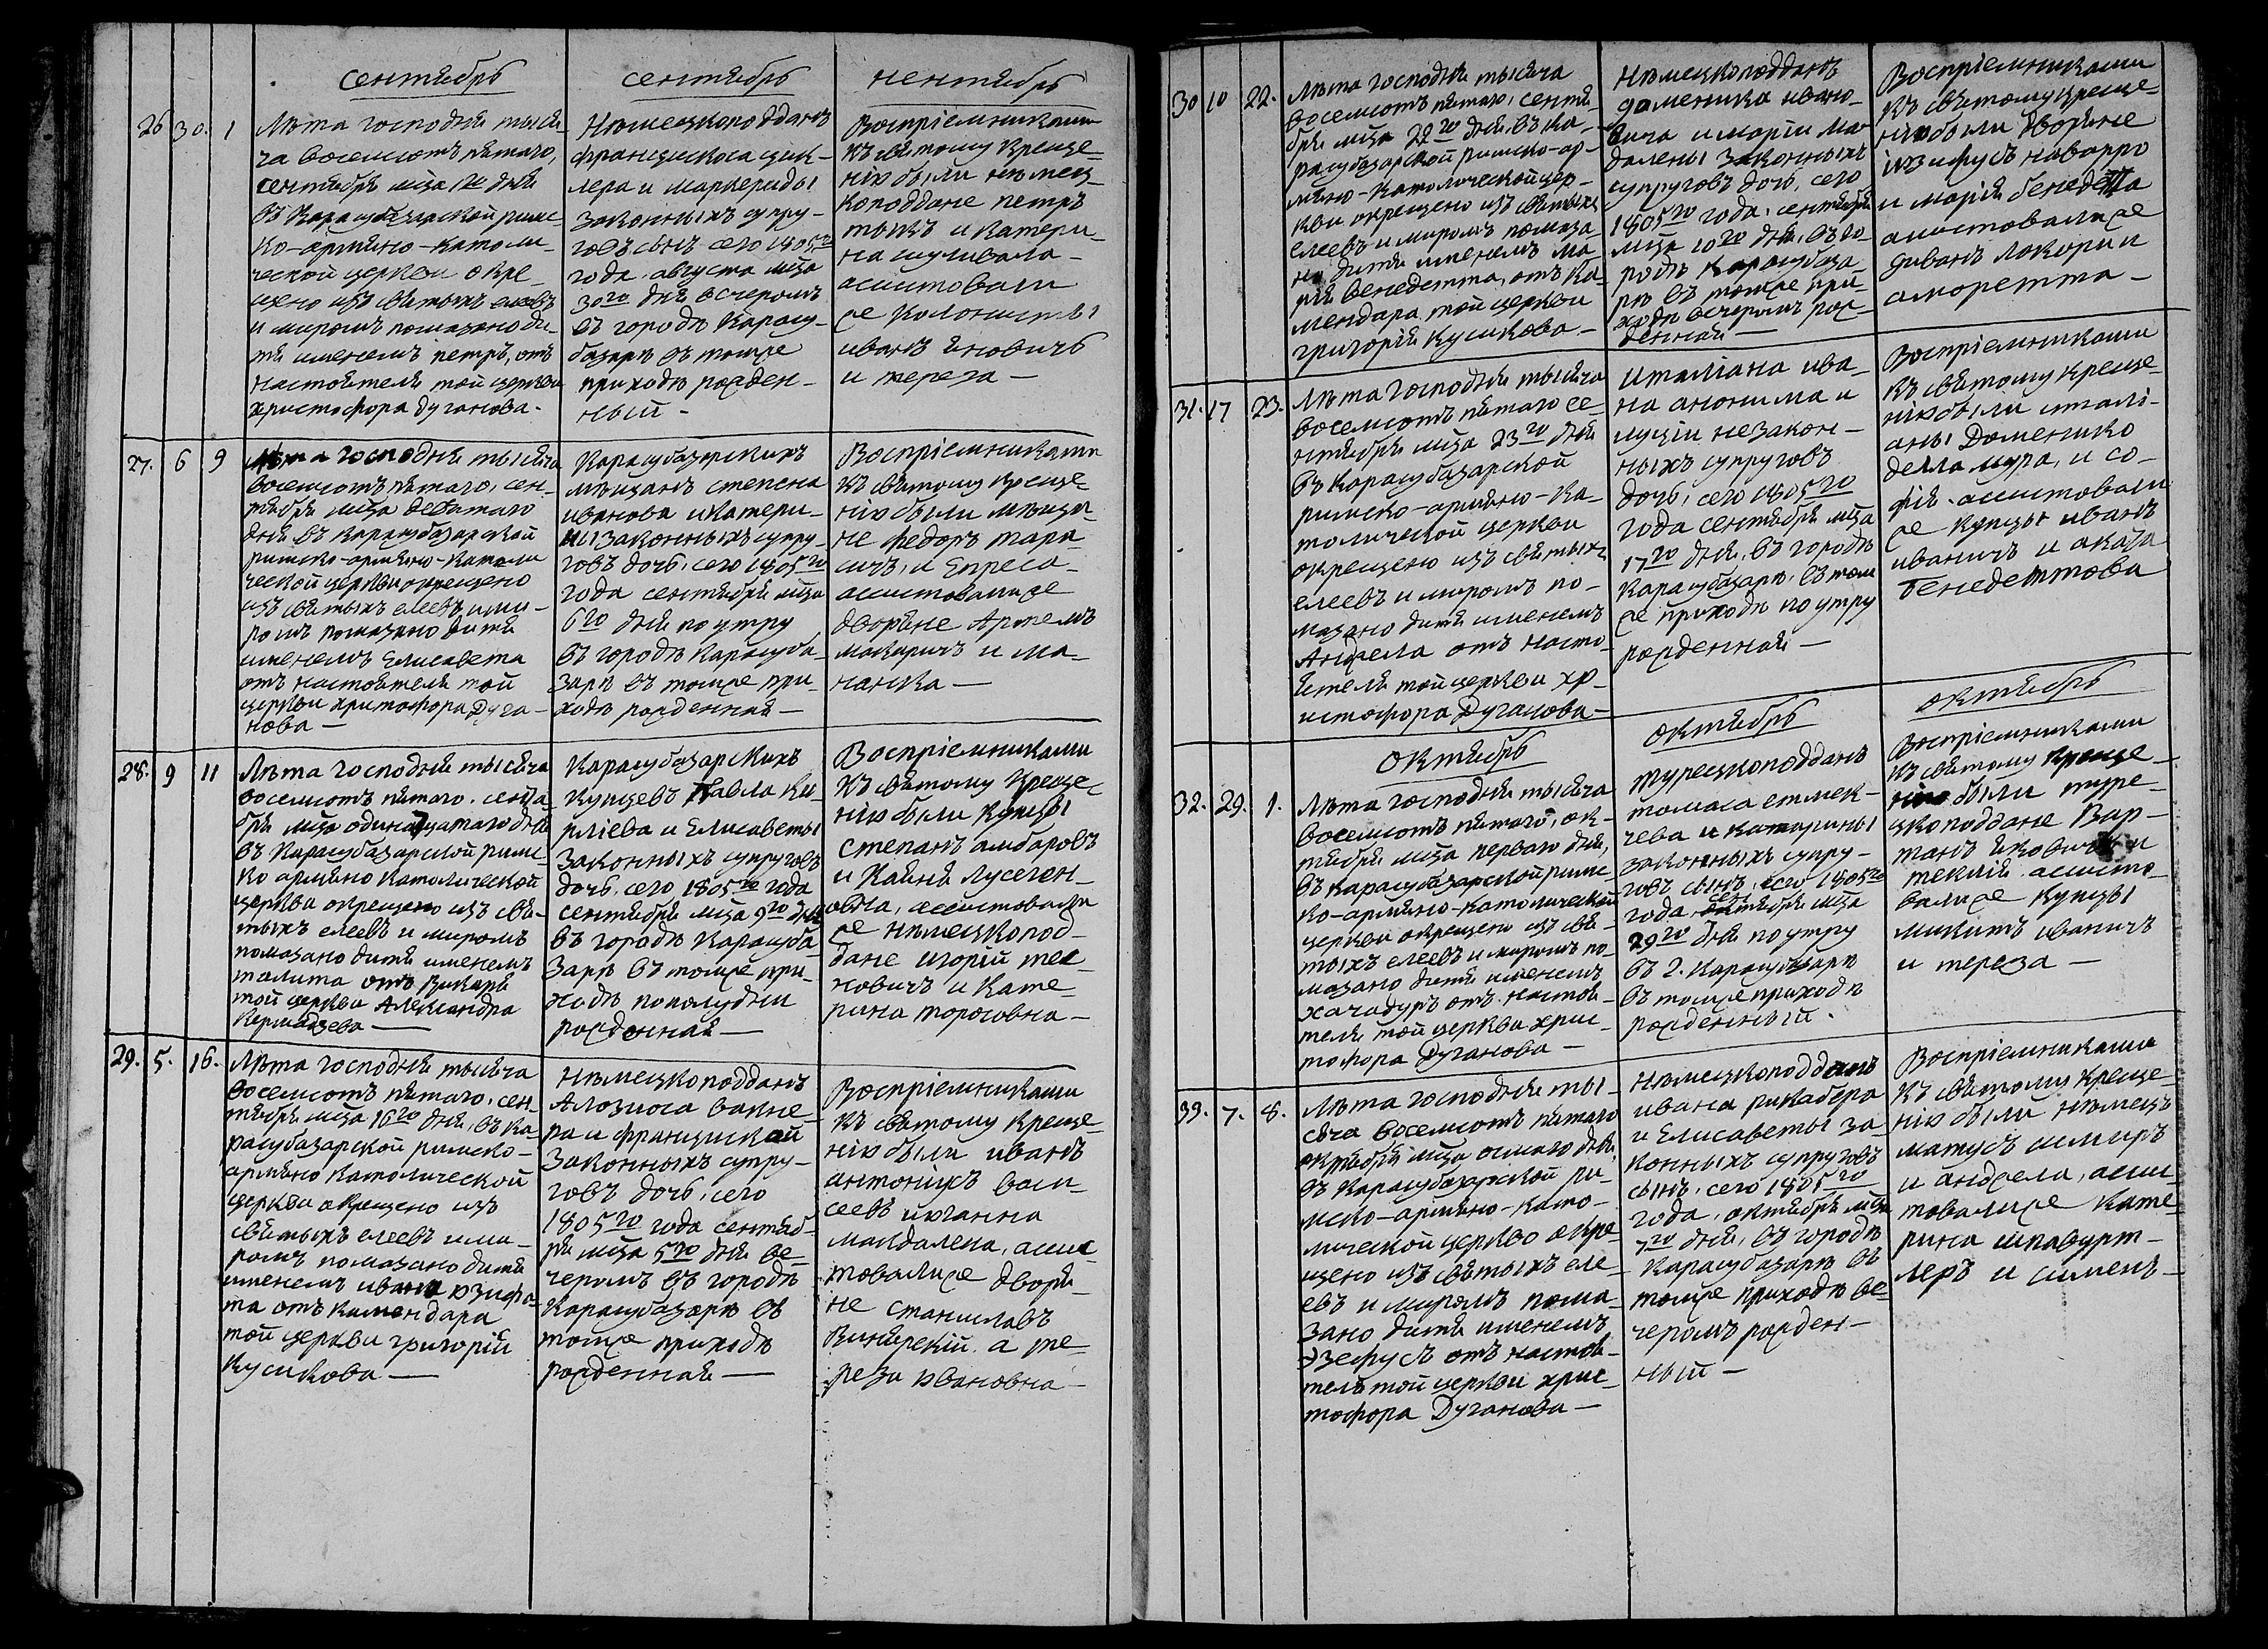 сентябрь
26 30. 1
Лѣта господня тыся-
ча восемсотъ пятаго,
сентября мца 1го дня
въ Карасубазарской римс-
ко-армяно-католи-
ческой церкви окре-
щено изъ святыхъ елеевъ
и миромъ помазано ди-
тя именемъ петръ, отъ
настоятеля той церкви
христофора дуганова.
сентябрь
Нѣмецкоподданъ
францискоса цик-
лера и маргериды
законныхъ супру-
говъ сынъ сего 1805го
года августа мца
30го дня вечеромъ
въ городѣ Карасу-
базарѣ въ томже
приходѣ рожден-
ный -
нентябрь
Воспріемниками
къ святому креще-
нію были нѣмец-
коподдане петръ
тыкъ и катери-
на шушвала-
асистовали
же колонисты
иванъ яновичъ
и тереза —
27. 6 9
Лѣта господня тысяча
восемсотъ пятаго, сен-
тября мца девятаго
дня въ карасубазарской
римско-армяно-катали
ческой церкви окрещено
изъ святыхъ елеевъ и ми-
ромъ помазано дитя
именемъ Елисавета
отъ настоятеля той
церкви христофора Дуга-
нова —
Карасубазарскихъ
мѣщанъ степана
иванова и катери-
ны законныхъ супру-
говъ дочь, сего 1805го
года сентября мца
6го дня по утру
въ городѣ Карасуба-
зарѣ въ томже при-
ходѣ рожденная —
Воспріемниками
къ святому креще-
нію были мѣща-
не федоръ тара-
сичъ, и Епреса-
асистовали же
дворяне Артемъ
макаричъ и ма-
нанка —
28. 9 11
Лѣта господня тысяча
восемсотъ пятаго. сентя-
бря мца одинадцатаго дня
въ Карасубазарской римс-
ко армяно католической
церкви окрещено изъ свя-
тыхъ елеевъ и миромъ
помазано дитя именемъ
талита отъ викаря
той церкви Александра
Кермадзева —
Карасубазарскихъ
купцевъ Павла Ки-
рліева и Елисаветы
законныхъ супруговъ
дочь, сего 1805го года
сентября мца 9го дня
въ городѣ Карасуба-
зарѣ въ томже при-
ходѣ пополудни
рожденная —
Воспріемниками
къ святому креще-
нію были купцы
степанъ амбаровъ
и Каяня лусеген-
овна, асистовали
же нѣмецкопод-
дане игорій тес
новичъ и кате-
рина торосовна —
29. 5. 16.
Лѣта господня тысяча
восемсотъ пятаго, сен-
тября мца 16го дня, въ ка-
расубазарской римско-
армяно католической
церкви окрещено изъ
святыхъ елеевъ и ми-
ромъ помазано дитя
именемъ ивана юзифа-
та отъ камендара
той церкви григорій
Кусикова —
Нѣмецкоподданъ
Алозиоса вакне-
ра и францискай
законныхъ супру-
говъ дочь, сего
1805го года сентяб-
ря мца 5го дня ве-
черомъ въ городѣ
Карасубазарѣ въ
томже приходѣ
рожденная —
Воспріемниками
къ святому креще-
нію были иванъ
антонисъ васи-
сеевъ июганна
макдалена, асис
товали же дворя-
не станиславъ
Винярскій. а те-
реза ивановна —
30 10 22.
Лѣта господня тысяча
восемсотъ пятаго, сентя-
бря мца 22го дня, въ ка-
расубазарской римско-ар-
мяно-католической цер-
кви окрещено изъ святыхъ
елеевъ и миромъ помаза-
но дитя именемъ ма-
рія венедетта, отъ ка-
мендара, той церкви
григорій кусикова. —
Нѣмецкоподданъ
даменика ивано-
вича и маріи ма-
далены законныхъ
супруговъ дочь, сего
1805го года, сентября
мца 10го дня, въ го-
родѣ Карасубаза-
рѣ въ томже при-
ходѣ вечеромъ рож-
денная —
Воспріемниками
къ святому креще-
нію были дворяне
іозифусъ наварро
и марія бенедета
асистовали же
диванъ локори и
аморетта —
31. 17 23.
Лѣта господня тысяча
восемсотъ пятаго се-
нтября мца 23го дня
въ карасубазарской
римско-армяно-ка-
толической церкви
окрещено изъ святыхъ
елеевъ и миромъ по-
мазано дитя именемъ
Анжела отъ насто-
ятеля той церкви хр-
истофора Дуганова —
Италіана ива-
на анонима и
луціи незакон-
ныхъ супруговъ
дочь, сего 1805го
года сентября мца
17го дня, въ городѣ
Карасубазарѣ, въ том
же приходѣ по утру
рожденная —
Воспріемниками
къ святому креще-
нію были италі-
аны Доменико
делла мура, и со-
фія. асистовали
же купцы иванъ
иваничъ и агата
бенедеттова
32. 29. 1.
октябрь
Лѣта господня тысяча
восемсотъ пятаго, ок-
тября мца перваго дня,
въ карасубазарской римс-
ко-армяно-католической
церкви окрещено изъ свя-
тыхъ елеевъ и миромъ по-
мазано дитя именемъ
хачадуръ отъ настоя-
теля той церкви хрис-
тофора Дуганова —
октябрь
турецкоподданъ
томаса етмек-
чева и катарины
законныхъ супру-
говъ сынъ, сего 1805го
года, сентября мца
29го дня по утру
въ г. Карасубазарѣ
въ томже приходѣ
рожденный.
октябрь
Воспріемниками
къ святому креще-
нію были туре-
цкоподдане Вар-
танъ яковичъ и
теклія. асисто-
вали же купцы
микитъ иваничъ
и тереза —
33. 7. 8.
Лѣта господня ты-
сяча восемсотъ пятаго
октября мца осмаго дня,
въ Карасубазарской ри-
мско-армяно-като-
лической церкво окре-
щено изъ святыхъ еле-
евъ и миромъ пома-
зано дитя именемъ
Эзефусъ отъ настоя-
теля той церкви хрис-
тофора Дуганова —
Нѣмецкоподданъ
ивана рикабера
и Елисаветы за-
конныхъ супруговъ
сынъ, сего 1805го
года, октября мца
7го дня, въ городѣ
Карасубазарѣ въ
томже приходѣ ве-
черомъ рожден-
ный —
Воспріемниками
къ святому креще-
нію были нѣмецъ
матусъ шмиръ
и анжела, асис-
товали же кате-
рина шпавурт-
леръ и сименъ —